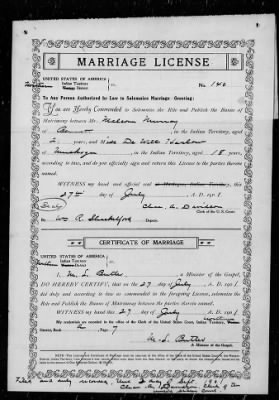 MARRIAGE LICENSE
UNITED STATES OF AMERICA
Indian Territory
District
No. 140
To Any Person Authorized by Law to Solemnize Marriage: Greeting:
You are Hereby Commanded to Solemnize the Rite and Publish the Banns of
Matrimony between Mr. Nelson Murray
of Bennett, in the Indian Territory, aged
years, and Miss De Well Harlow
of Muskogee, in the Indian Territory, aged 18 years,
according to law, and do you officially sign and return this License to the parties therein
named.
WITNESS my hand and official seal
this 27th day of July A. D. 190
Chas. A. Davidson
Clerk of the U. S. Court
By Wm R. Shackelford Deputy
CERTIFICATE OF MARRIAGE
UNITED STATES OF AMERICA
Indian Territory
District
I, M. L. Butler, a Minister of the Gospel,
DO HEREBY CERTIFY, that on the 27 day of July A. D. 190
did duly and according to law as commanded in the foregoing License, solemnize the
Rite and Publish the Banns of Matrimony between the parties therein named.
WITNESS my hand this 27 day of July A. D. 190
My credentials are recorded in the office of the Clerk of the United States Court, Indian Territory,
District, Book Page 7
M. L. Butler
A Minister of the Gospel
Filed and duly recorded, this day of Sept
Chas. A. Davidson Clerk of the
United States Court